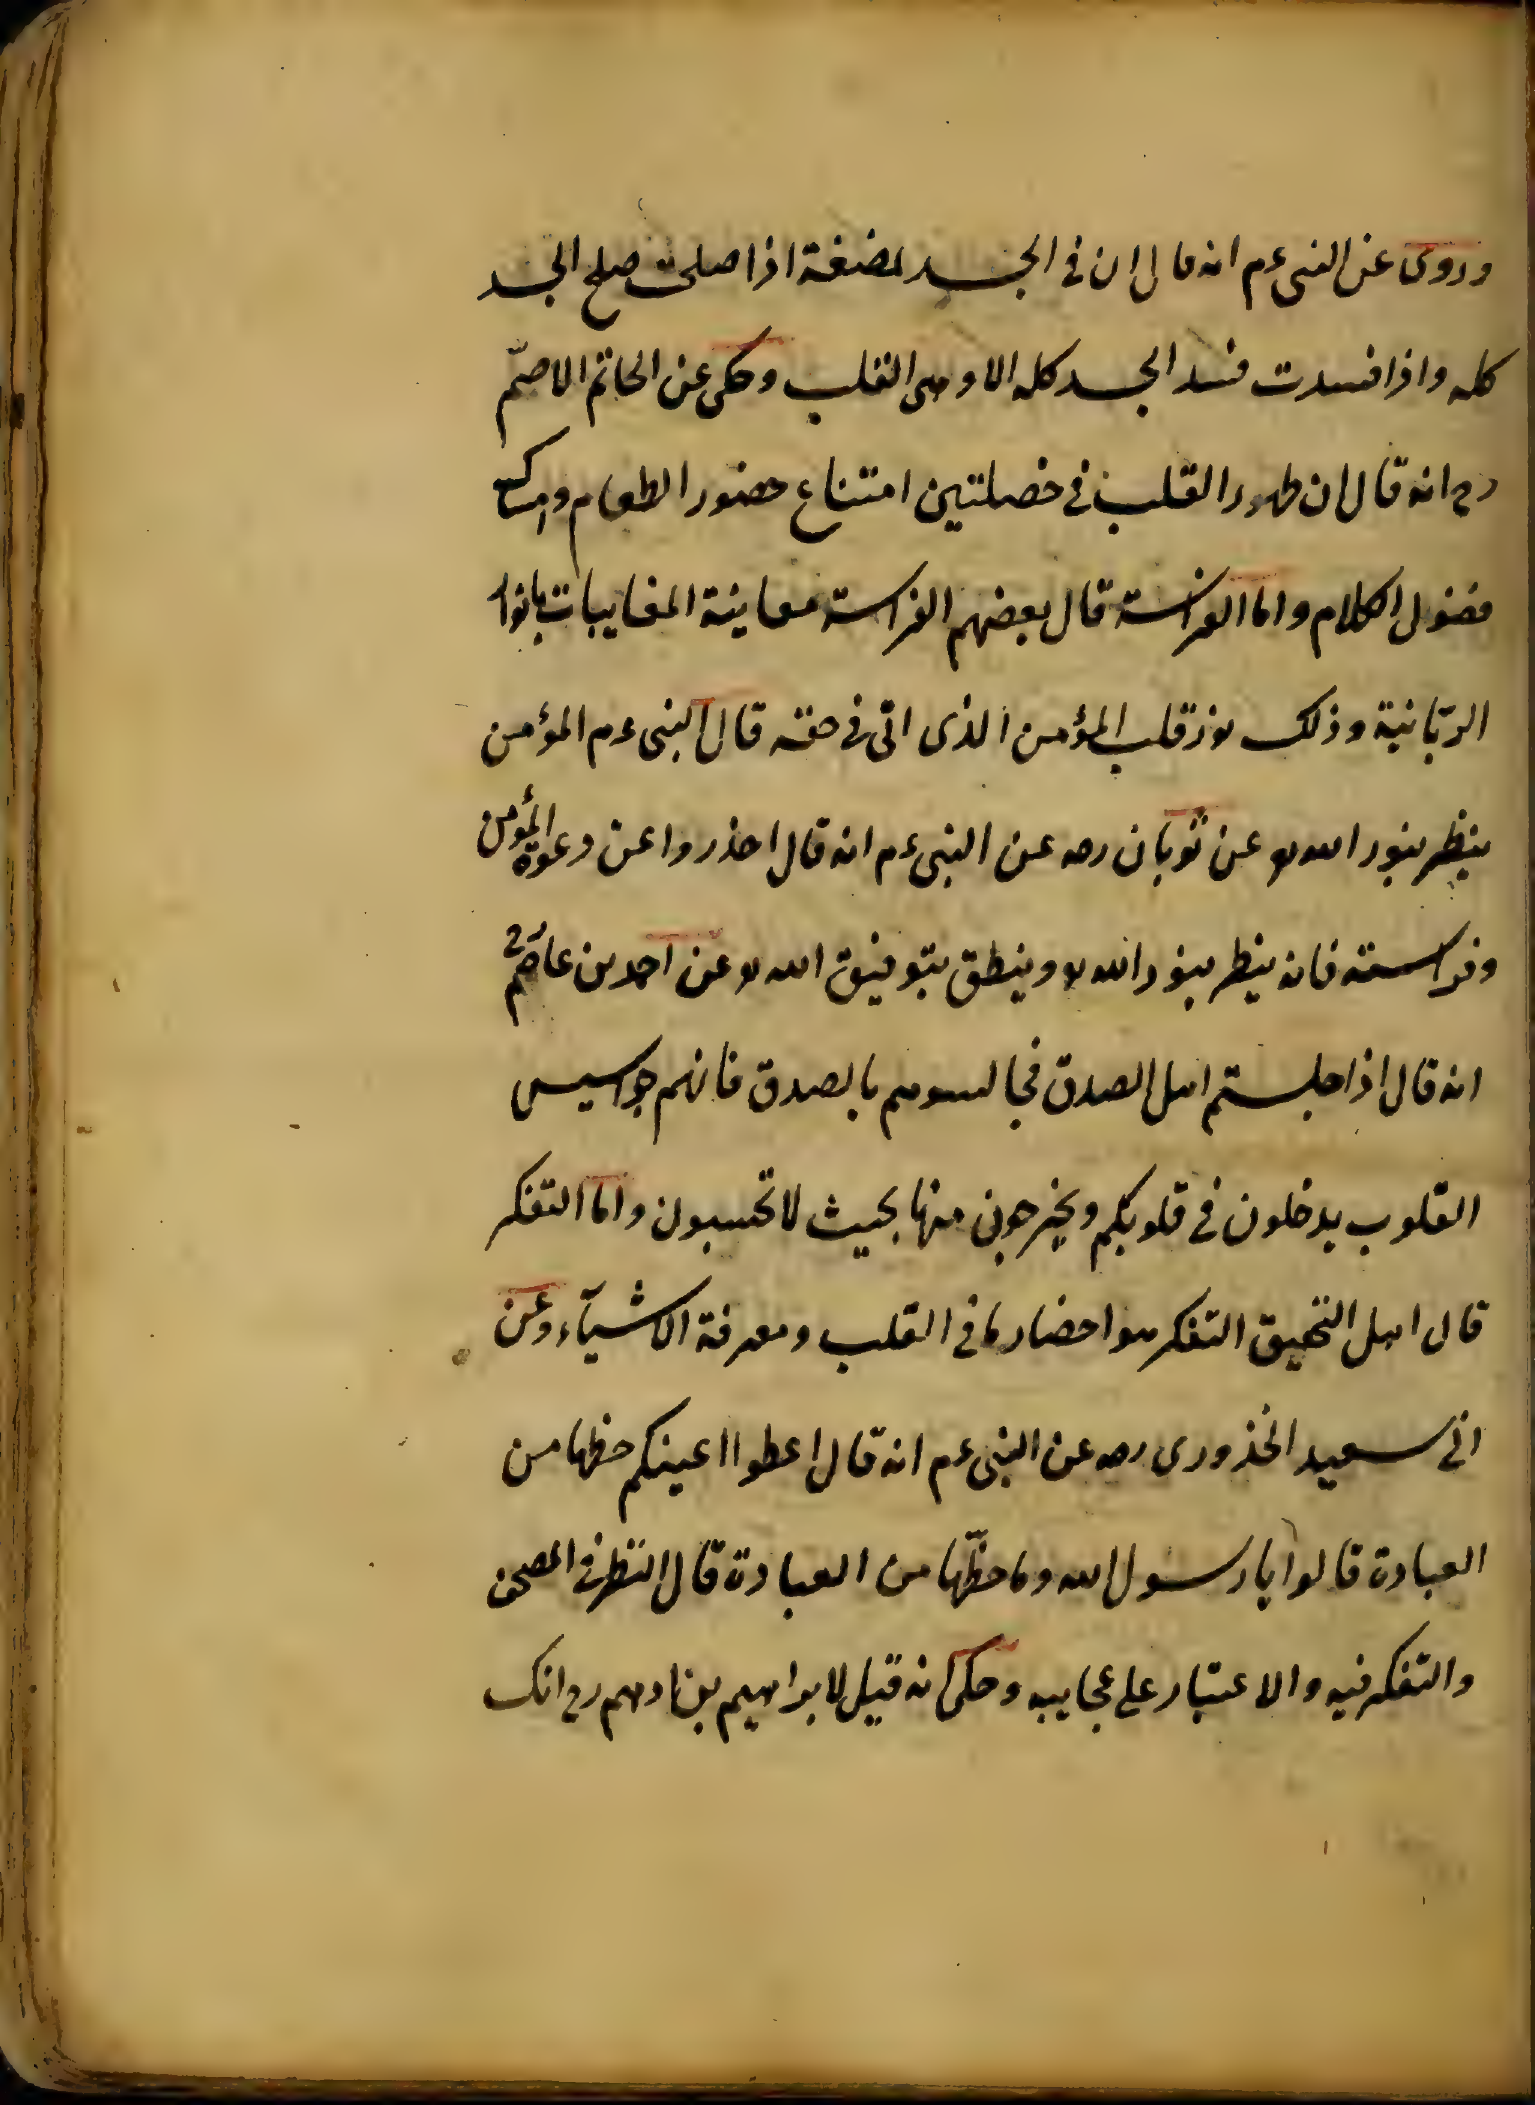 وروى عن النبى ءم انه قال ان فى الجسد لمضغة اذا صلحت صلح الجسد
كله واذا فسدت فسد الجسد كله الا وهى القلب وحكى عن الحاتم الاصمّ
رح انه قال ان طهور القلب فى خصلتين امتناع حضور الطعام وامساك
فضول الكلام واما الفراسة قال بعضهم الفراسة معاينة المغايبات بانوار
الربّانية وذلك نور قلب المؤمن الذى اتى فى حقه قال النبى ءم المؤمن
ينظر بنور الله عن ثوبان رضه عن النبى ءم انه قال احذروا عن دعوة المؤمن
وفراسته فانه ينظر بنور الله وينطق بتوفيق الله عن احمد بن عاصم رح
انه قال اذا جلستم اهل الصدق فجالسوهم بالصدق فانهم جواسيس
القلوب يدخلون فى قلوبكم ويخرجون منها بحيث لا تحسبون واما التفكر
قال اهل التحقيق التفكر هو احضار ما فى القلب ومعرفة الاشيآء وعن
ابى سعيد الخذورى رضه عن النبى ءم انه قال اعطوا اعينكم حظها من
العبادة قالوا يا رسول الله وما حظّها من العبادة قال النظر فى المصحف
والتفكر فيه والاعتبار على عجايبه وحكى انه قيل لابراهيم بن ادهم رح انك